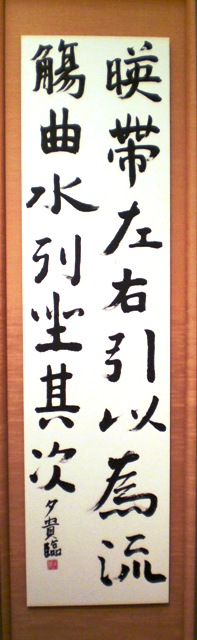 暎帶左右引以為流
觴曲水列坐其次
夕貴臨